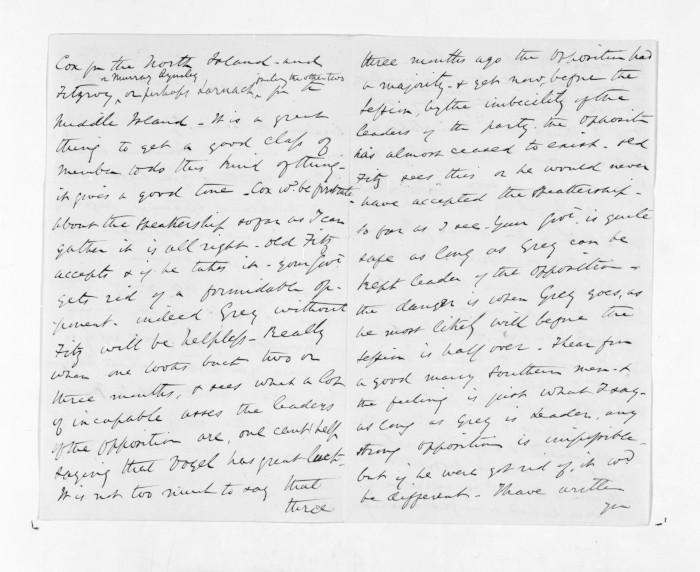 Cox for the North Island - and
or Murray Aynsley failing the other two
Fitzroy, or perhaps Larnach, for the
Middle Island - It is a great
thing to get a good class of
member to do this kind of thing -
it gives a good tone - Cox wd. be
about the Speakership so far as I can
gather it is all right - Old Fitz
accepts & if he takes it - your Govt.
gets rid of a formidable op-
ponent - indeed Grey without
Fitz will be helpless - Really
when one looks back two or
three months, & sees what a lot
of incapable asses the leaders
of the Opposition are, one cant help
saying that Vogel has great luck -
It is not too much to say that
three
three months ago the Opposition had
a majority - & yet now, before the
Session, by the imbecility of the
leaders of the party, the opposition
has almost ceased to exist -
Fitz sees this or he would never
have accepted the Speakership -
so far as I see - Your Govt. is quite
safe as long as Grey can be
kept leader of the Opposition -
the danger is when Grey goes, as
he most likely will before the
Session is half over - I hear from
a good many Southern men - &
the feeling is just what I say -
as long as Grey is Leader, any
strong opposition is impossible -
but if he were got rid of, it wd.
be different - I have written
you